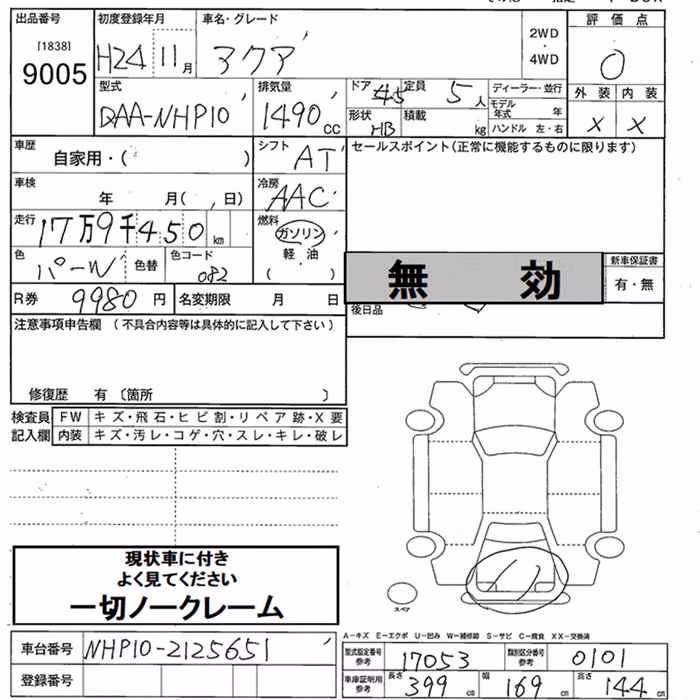 出品番号 初度登録年月 車名・グレード 2WD・4WD 評価点
[1838]
9005 H24 11月 アクア 0
型式 排気量 ドア 定員 ディーラー・並行 外装 内装
DAA-NHP10 1490cc 45 5人 モデル年式 年 X X
形状 HB 積載 kg ハンドル 左・右
車歴 自家用・( ) シフト AT セールスポイント(正常に機能するものに限ります)
車検 年 月( , 日) 冷房 AAC
走行 17万9千450km 燃料 ガソリン
軽・油
( )
色 パーW 色替 色コード 082 無効 新車保証書
有・無
R券 9980円 名変期限 月 日 後日品
注意事項申告欄(不具合内容等は具体的に記入して下さい)
修復歴 有〔箇所 〕
検査員 FW キズ・飛石・ヒビ割・リペア跡・X要
記入欄 内装 キズ・汚レ・コゲ・穴・スレ・キレ・破レ
現状車に付き
よく見てください
一切ノークレーム
スペア
A-キズ E-エクボ U-凹み W-補修跡 S-サビ C-腐食 XX-交換済
車台番号 NHP10-2125651 型式指定番号 参考 17053 類別区分番号 参考 0101
登録番号 車庫証明用 参考 長さ 399cm 幅 169cm 高さ 144cm